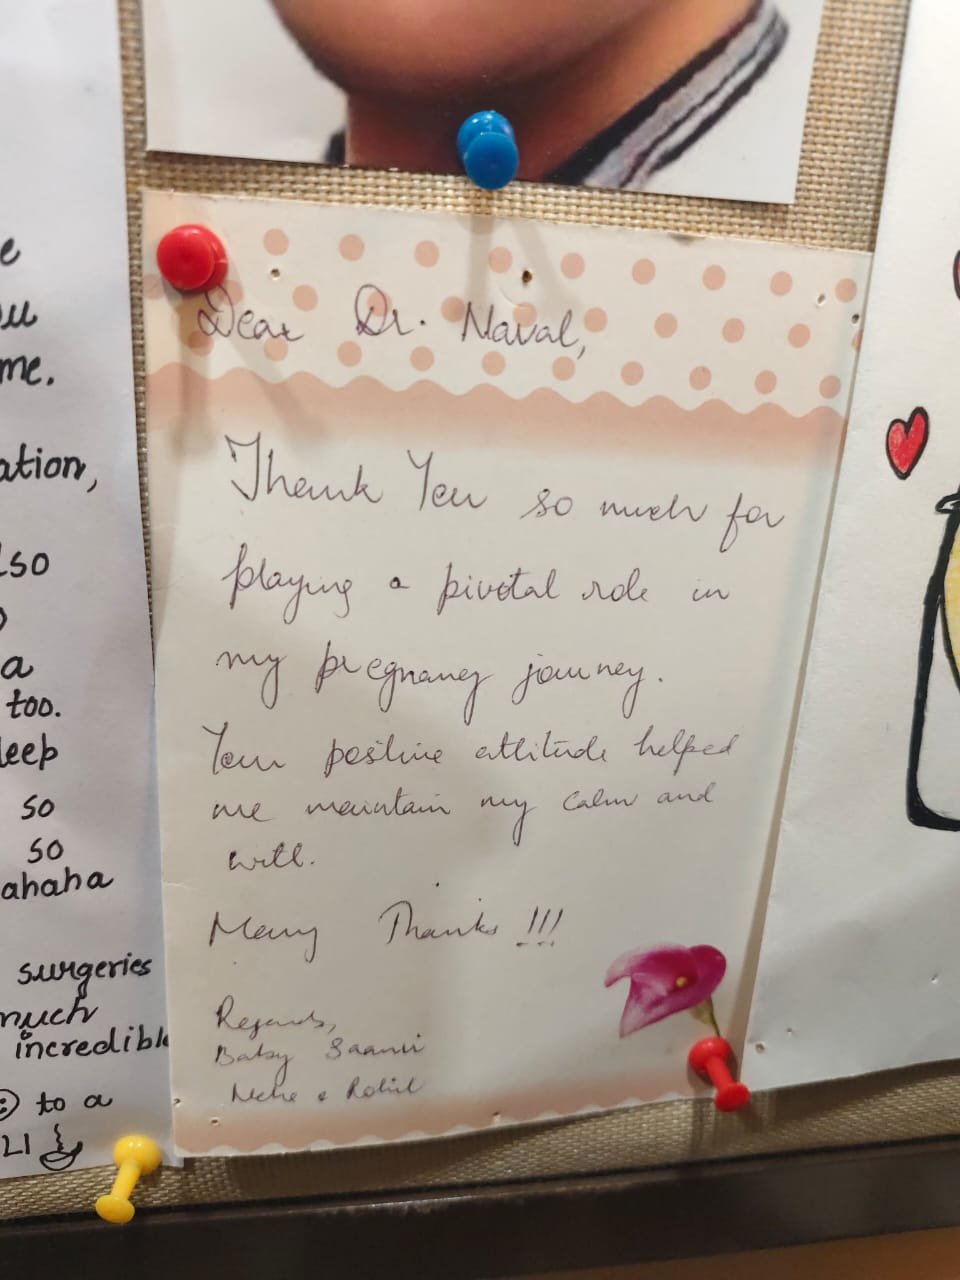 e
ou
me.
ation,
lso
a
too.
leep
so
so
ahaha
surgeries
much
incredible
to a
LI
Dear Dr. Naval,
Thank You so much for
playing a pivotal role in
my pregnancy journey.
Your positive attitude helped
me maintain my calm and
will.
Many Thanks !!!
Regards,
Baby Saanvi
Neha & Rohit